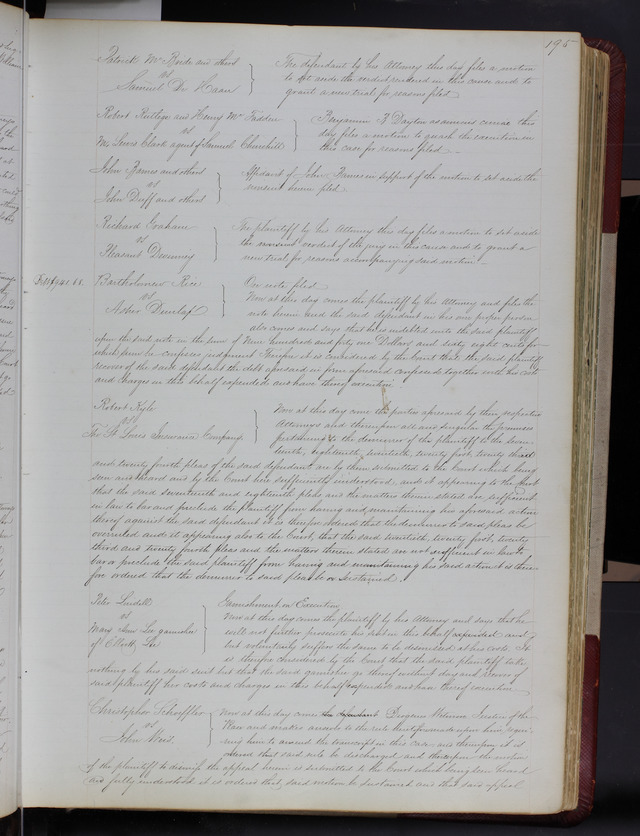 195
Patrick McBride and others
vs
Samuel De Haan
The defendant by his Attorney this day files a motion
to set aside the verdict rendered in this cause and to
grant a new trial for reasons filed
Robert Rutlege and Henry McFadden
vs
Ms Lewis Clark agent of Samuel Churchill
Benjamin B Dayton as amicus curiae this
day files a motion to quash the execution in
this case for reasons filed
John Barnes and others
vs
John Duff and others
Affidavit of John Barnes in support of the motion to set aside the
herein filed
Richard Graham
vs
Pleasant
The plaintiff by his Attorney this day files a motion to set aside
the verdict of the jury in this cause and to grant a
new trial for reasons accompanying said motion
Debt $941.68.
Bartholomew Rice
vs
Asher Dunlap
On note filed
Now at this day comes the plaintiff by his Attorney and files the
note herein and the said defendant in his own proper person
also comes and says that he is indebted unto the said plaintiff
upon the said note in the sum of Nine hundred and forty one Dollars and sixty eight cents for
which sum he confesses judgment Therefore it is considered by the Court that the said plaintiff
recover of the said defendant the debt aforesaid in form aforesaid confessed together with his costs
and charges in this behalf expended and have thereof execution
Robert Kyle
vs
The St Louis Insurance Company
Now at this day come the parties aforesaid by their respective
Attorneys and thereupon all and singular the premises
pertaining to the demurrer of the plaintiff to the seven-
teenth, eighteenth, twentieth, twenty first, twenty third
and twenty fourth pleas of the said defendant are by them submitted to the Court which being
seen and heard and by the Court here sufficiently understood, and it appearing to the Court
that the said seventeenth and eighteenth pleas and the matters therein stated are sufficient
in law to bar and preclude the plaintiff from having and maintaining his aforesaid action
thereof against the said defendant it is therefore ordered that the demurrer to said pleas be
overruled and it appearing also to the Court, that the said twentieth, twenty first, twenty
third and twenty fourth pleas and the matters therein stated are not sufficient in law to
bar or preclude the said plaintiff from having and maintaining his said action it is there-
fore ordered that the demurrer to said pleas be sustained.
Peter Lindell
vs
Mary Ann Lee garnishee
of Elliott Lee
Garnishment on Execution
Now at this day comes the plaintiff by his Attorney and says that he
will not further prosecute his suit in this behalf expended and
but voluntarily suffers the same to be dismissed at his costs. It
is therefore considered by the Court that the said plaintiff take
nothing by his said suit but that the said garnishee go thereof without day and recover of
said plaintiff her costs and charges in this behalf expended and have thereof execution
Christopher Schoffler
vs
John Ward.
Now at this day comes the defendant Justice of the
Peace and makes answer to the rule heretofore made upon him requir-
ing him to amend the transcript in this case and thereupon it is
ordered that said rule be discharged and thereupon the motion
of the plaintiff to dismiss the appeal herein is submitted to the Court which being seen heard
and fully understood it is ordered that, said motion be sustained and that said appeal